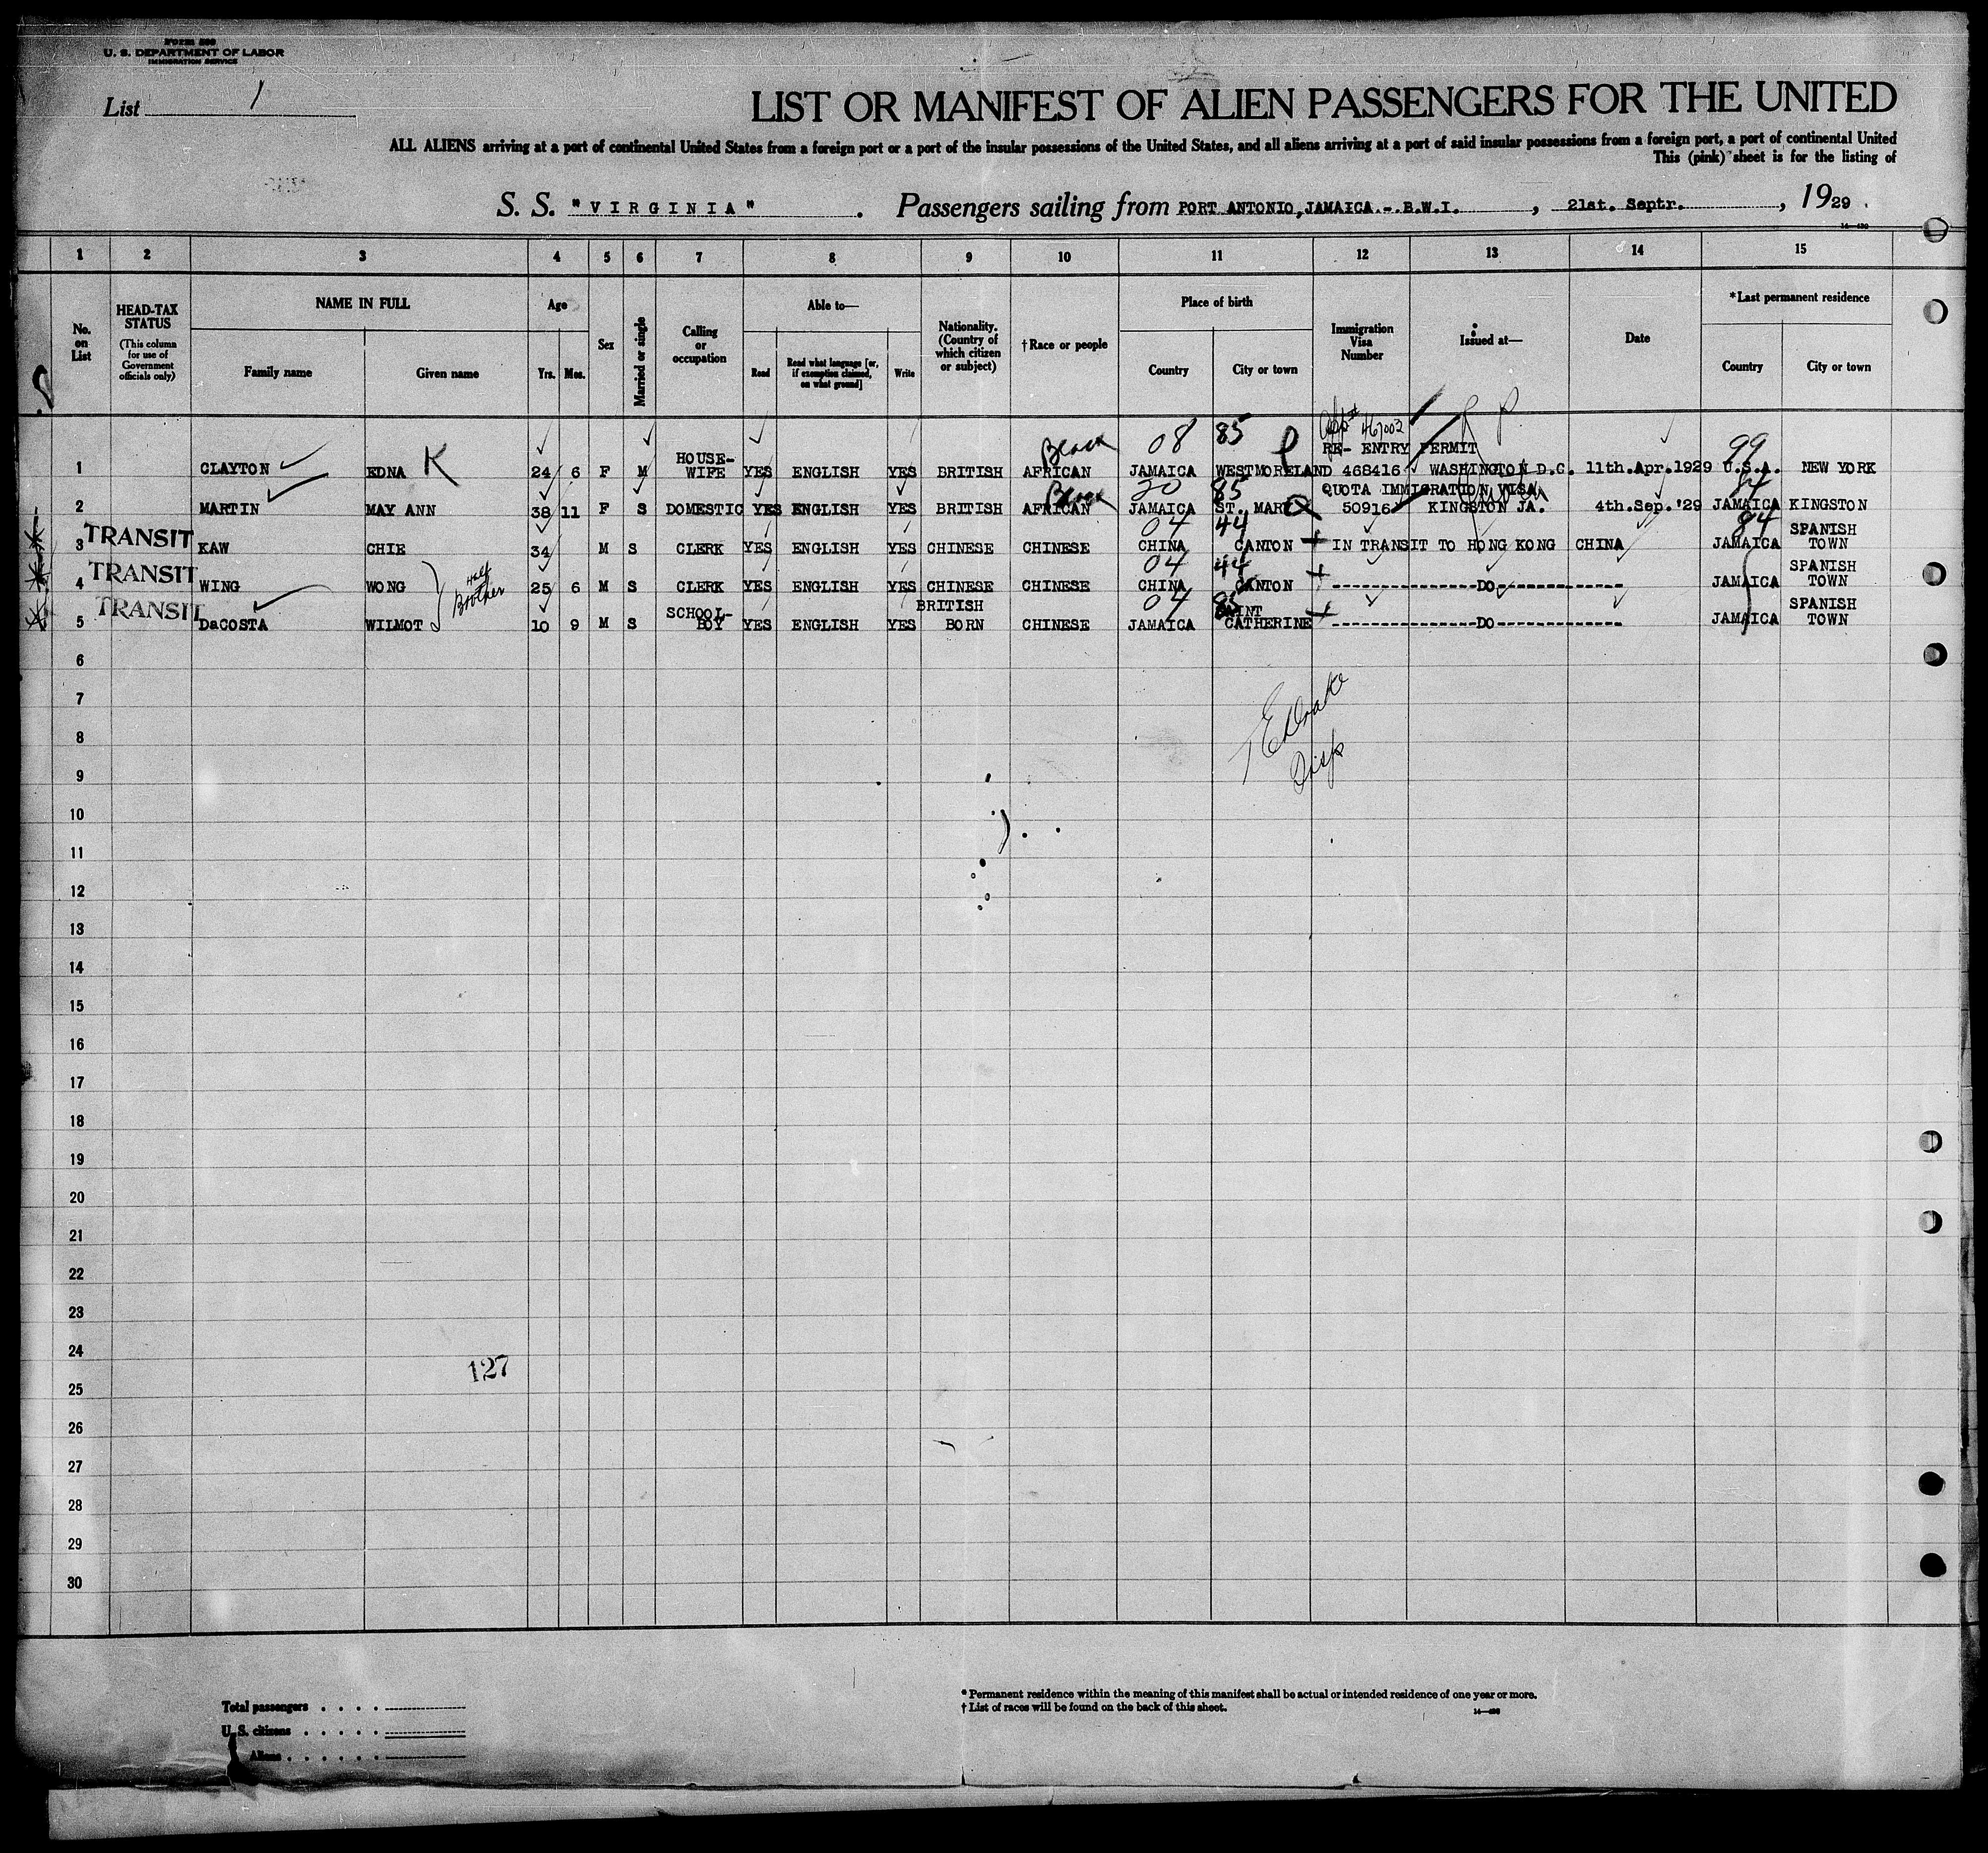 Form 500
U. S. DEPARTMENT OF LABOR
IMMIGRATION SERVICE
List 1
LIST OR MANIFEST OF ALIEN PASSENGERS FOR THE UNITED
ALL ALIENS arriving at a port of continental United States from a foreign port or a port of the insular possessions of the United States, and all aliens arriving at a port of said insular possessions from a foreign port, a port of continental United
This (pink) sheet is for the listing of
S. S. "VIRGINIA". Passengers sailing from PORT ANTONIO, JAMAICA.-.B.W.I., 21st. Septr., 1929
1 2 3 4 5 6 7 8 9 10 11 12 13 14 15
No. on List
HEAD-TAX STATUS (This column for use of Government officials only)
NAME IN FULL Family name Given name
Age Yrs. Mos.
Sex
Married or single
Calling or occupation
Able to— Read Read what language [or, if exemption claimed, on what ground] Write
Nationality. (Country of which citizen or subject)
†Race or people
Place of birth Country City or town
Immigration Visa Number
Issued at—
Date
*Last permanent residence Country City or town
Black 08 85 467002 99
RE- ENTRY PERMIT
1 CLAYTON EDNA K 24 6 F M HOUSE-WIFE YES ENGLISH YES BRITISH AFRICAN JAMAICA WESTMORELAND 468416 WASHINGTON D.C. 11th.Apr.1929 U.S.A. NEW YORK
Black 20 85 QUOTA IMMIGRATION VISA
2 MARTIN MAY ANN 38 11 F S DOMESTIC YES ENGLISH YES BRITISH AFRICAN JAMAICA ST. MARY 50916 KINGSTON JA. 4th.Sep.'29 JAMAICA KINGSTON
TRANSIT 04 44 84
3 KAW CHIE 34 M S CLERK YES ENGLISH YES CHINESE CHINESE CHINA CANTON IN TRANSIT TO HONG KONG CHINA JAMAICA SPANISH TOWN
TRANSIT 04 44
4 WING WONG Half Brother 25 6 M S CLERK YES ENGLISH YES CHINESE CHINESE CHINA CANTON ----------------DO-------------- JAMAICA SPANISH TOWN
TRANSIT 04 85
5 DaCOSTA WILMOT 10 9 M S SCHOOL-BOY YES ENGLISH YES BRITISH BORN CHINESE JAMAICA SAINT CATHERINE ----------------DO-------------- JAMAICA SPANISH TOWN
6
7
8
9
10
11
12
13
14
15
16
17
18
19
20
21
22
23
24
127
25
26
27
28
29
30
Total passengers . . . .
U.S. citizens . . . . .
Aliens . . . . . .
* Permanent residence within the meaning of this manifest shall be actual or intended residence of one year or more.
† List of races will be found on the back of this sheet.